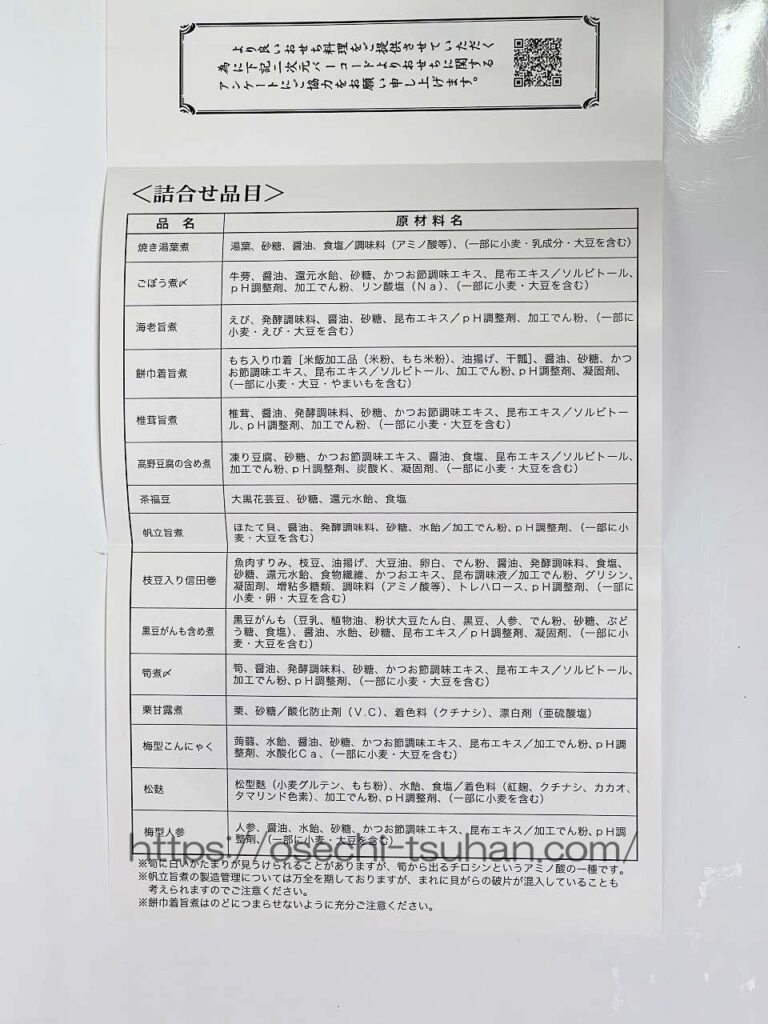 より良いおせち料理をご提供させていただく
為に下記二次元バーコードよりおせちに関する
アンケートにご協力をお願い申し上げます。
＜詰合せ品目＞
品 名 原材料名
焼き湯葉煮 湯葉、砂糖、醤油、食塩／調味料（アミノ酸等）、（一部に小麦・乳成分・大豆を含む）
ごぼう煮〆 牛蒡、醤油、還元水飴、砂糖、かつお節調味エキス、昆布エキス／ソルビトール、
ｐＨ調整剤、加工でん粉、リン酸塩（Ｎａ）、（一部に小麦・大豆を含む）
海老旨煮 えび、発酵調味料、醤油、砂糖、昆布エキス／ｐＨ調整剤、加工でん粉、（一部に
小麦・えび・大豆を含む）
餅巾着旨煮 もち入り巾着［米飯加工品（米粉、もち米粉）、油揚げ、干瓢］、醤油、砂糖、かつ
お節調味エキス、昆布エキス／ソルビトール、加工でん粉、ｐＨ調整剤、凝固剤、
（一部に小麦・大豆・やまいもを含む）
椎茸旨煮 椎茸、醤油、発酵調味料、砂糖、かつお節調味エキス、昆布エキス／ソルビトー
ル、ｐＨ調整剤、加工でん粉、（一部に小麦・大豆を含む）
高野豆腐の含め煮 凍り豆腐、砂糖、かつお節調味エキス、醤油、食塩、昆布エキス／ソルビトール、
加工でん粉、ｐＨ調整剤、炭酸Ｋ、凝固剤、（一部に小麦・大豆を含む）
茶福豆 大黒花芸豆、砂糖、還元水飴、食塩
帆立旨煮 ほたて貝、醤油、発酵調味料、砂糖、水飴／加工でん粉、ｐＨ調整剤、（一部に小
麦・大豆を含む）
枝豆入り信田巻 魚肉すりみ、枝豆、油揚げ、大豆油、卵白、でん粉、醤油、発酵調味料、食塩、
砂糖、還元水飴、食物繊維、かつおエキス、昆布調味液／加工でん粉、グリシン、
凝固剤、増粘多糖類、調味料（アミノ酸等）、トレハロース、ｐＨ調整剤、（一部に小
麦・卵・大豆を含む）
黒豆がんも含め煮 黒豆がんも（豆乳、植物油、粉状大豆たん白、黒豆、人参、でん粉、砂糖、ぶど
う糖、食塩）、醤油、水飴、砂糖、昆布エキス／ｐＨ調整剤、凝固剤、（一部に小
麦・大豆を含む）
筍煮〆 筍、醤油、発酵調味料、砂糖、かつお節調味エキス、昆布エキス／ソルビトール、
加工でん粉、ｐＨ調整剤、（一部に小麦・大豆を含む）
栗甘露煮 栗、砂糖／酸化防止剤（Ｖ.Ｃ）、着色料（クチナシ）、漂白剤（亜硫酸塩）
梅型こんにゃく 蒟蒻、水飴、醤油、砂糖、かつお節調味エキス、昆布エキス／加工でん粉、ｐＨ調
整剤、水酸化Ｃａ、（一部に小麦・大豆を含む）
松麩 松型麩（小麦グルテン、もち粉）、水飴、食塩／着色料（紅麹、クチナシ、カカオ、
タマリンド色素）、加工でん粉、ｐＨ調整剤、（一部に小麦を含む）
梅型人参 人参、醤油、水飴、砂糖、かつお節調味エキス、昆布エキス／加工でん粉、ｐＨ調
整剤、（一部に小麦・大豆を含む）
https://osechi-tsuhan.com/
※筍に白いかたまりが見うけられることがありますが、筍から出るチロシンというアミノ酸の一種です。
※帆立旨煮の製造管理については万全を期しておりますが、まれに貝がらの破片が混入していることも
考えられますのでご注意ください。
※餅巾着旨煮はのどにつまらせないように充分ご注意ください。